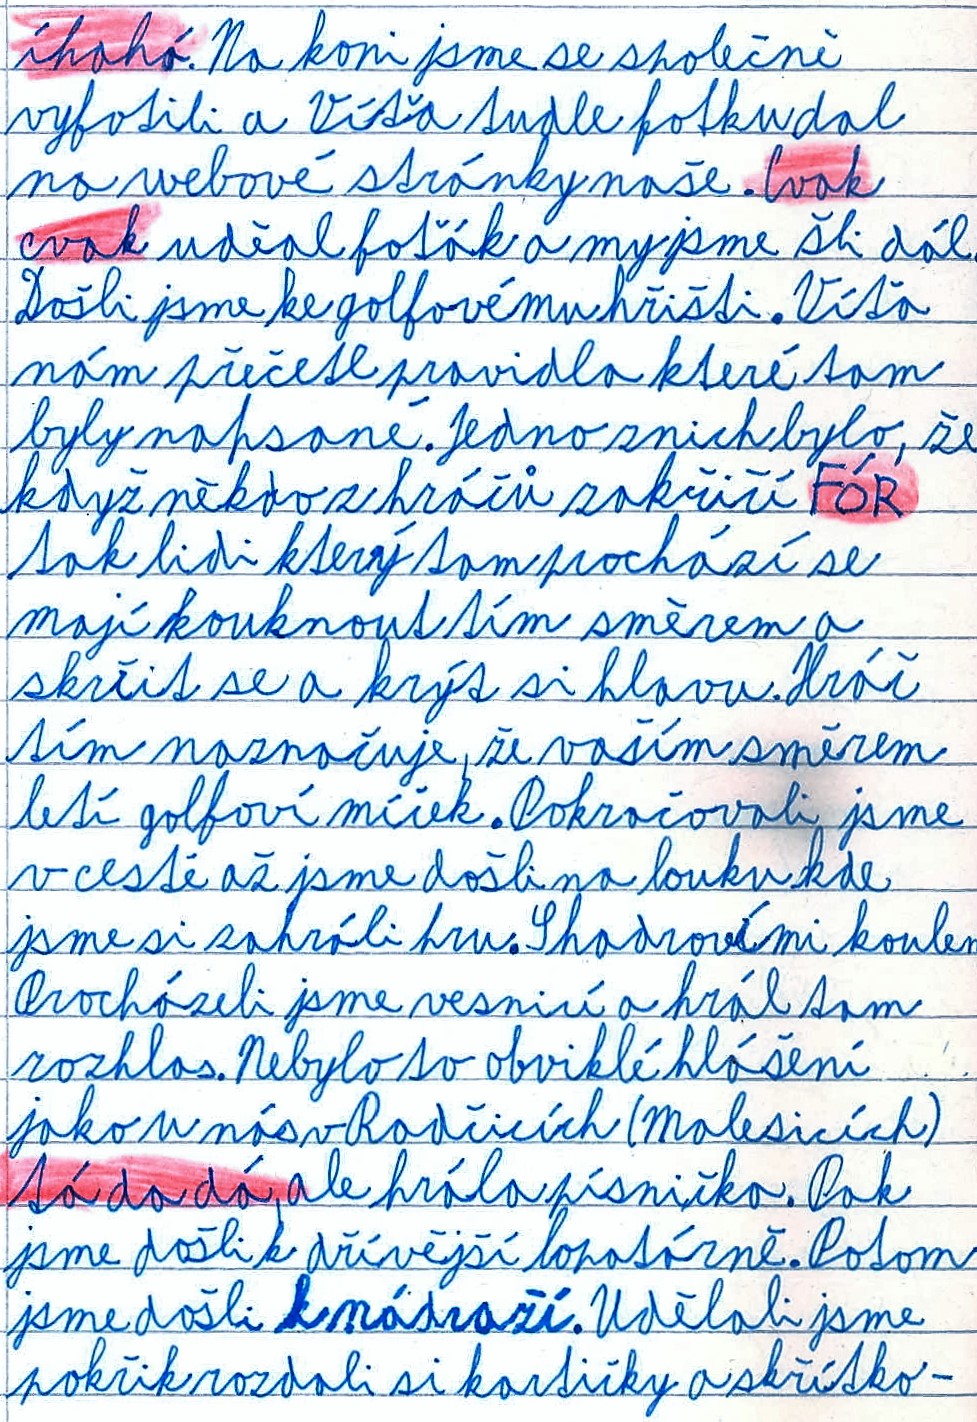 íhahá. Na koni jsme se společně
vyfotili a Víťa tudle fotku dal
na webové stránky naše. Cvak
cvak udělal foťák a my jsme šli dál.
Došli jsme ke golfovému hřišti. Víťa
nám přečetl pravidla které tam
byly napsané. Jedno z nich bylo, že
když někdo z hráčů zakřičí FÓR
tak lidi který tam prochází se
mají kouknout tím směrem a
skrčit se a krýt si hlavu. Hráč
tím naznačuje, že vaším směrem
letí golfoví míček. Pokračovali jsme
v cestě až jsme došli na louku kde
jsme si zahráli hru. S hadrovími koulem
Procházeli jsme vesnicí a hrál tam
rozhlas. Nebylo to obviklé hlášení
jako u nás v Radčicích (Malesicích)
tá da dá, ale hrála písnička. Pak
jsme došli k dřívější lopatárně. Potom
jsme došli k nádraží. Udělali jsme
pokřik rozdali si kartičky a skřítko-